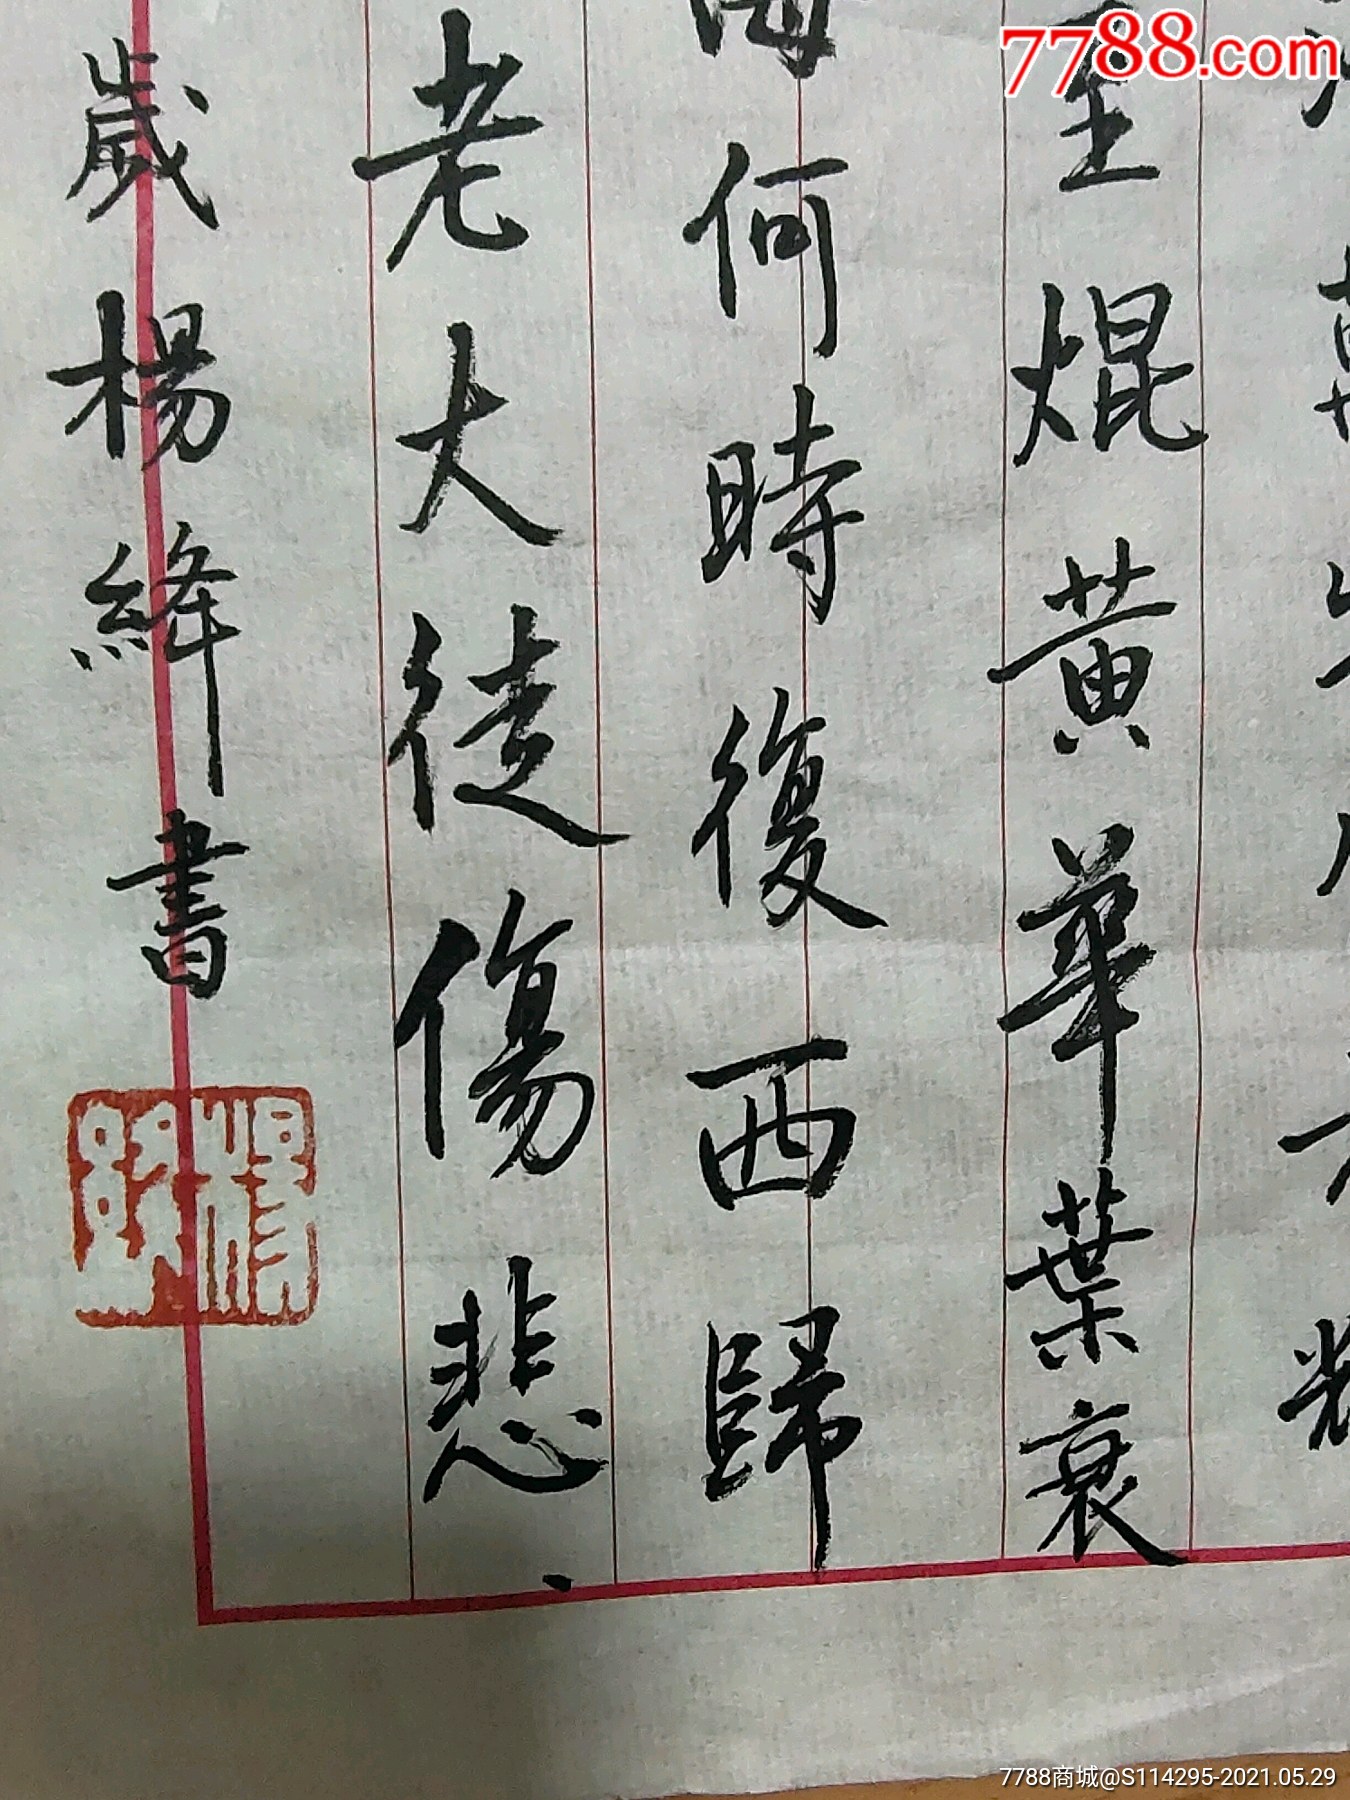 7788.com
萬物生光輝
至焜黃華葉衰
海何時復西歸
老大徒傷悲
歲楊絳書
楊絳
7788商城@S114295-2021.05.29